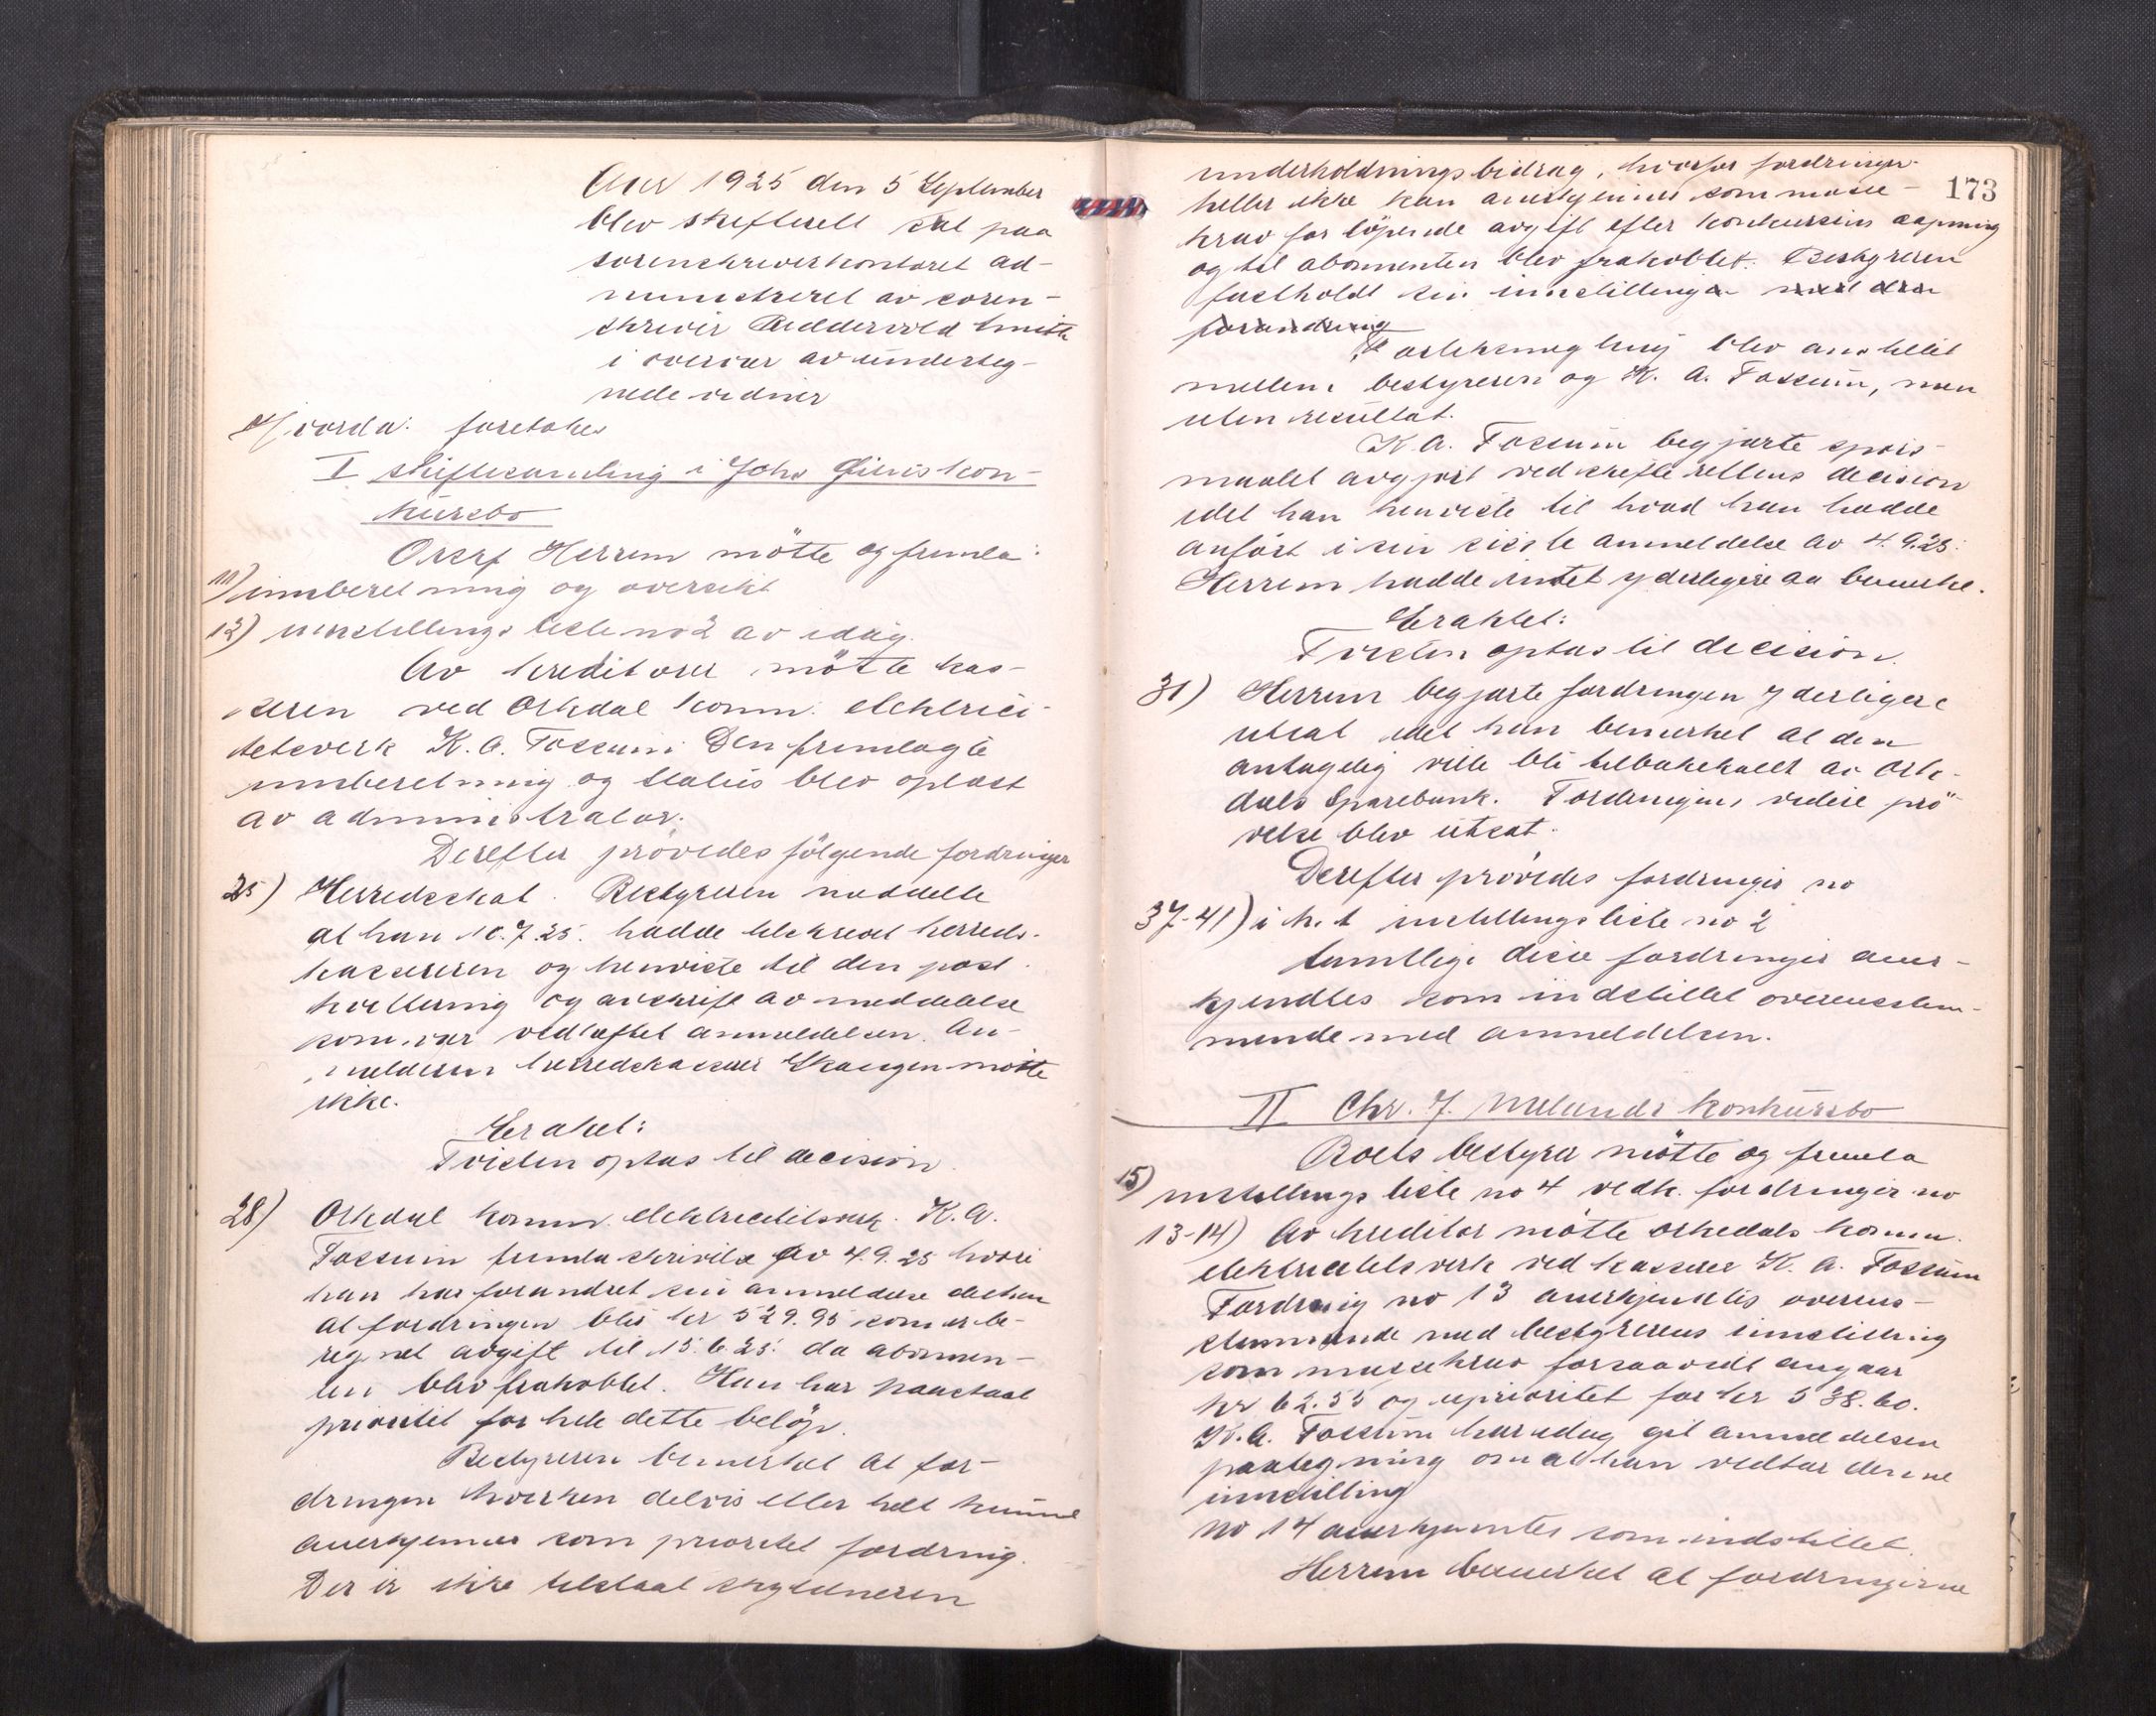 Aar 1925 den 5 September
blev skifterett sat paa
sorenskriverkontoret ad-
ministreret av soren-
skriver Riddervold Smith
i overvær av underteg-
nede vidner
Hvorda: foretokes
I skiftesamling i Johs kon-
kursbo
Orsrf Herrem mötte og fremla:
11) innberetning og oversikt
12) innstillingsliste no 2 av idag.
Av kreditorer mötte kas-
seren ved Orkdal komm. elektrici-
tetsverk K. A. Fossum. Den fremlagte
innberetning og status blev oplæst
av administrator.
Derefter prövedes fölgende fordringer
25) Herredsskat. Bestyreren meddelte
at han 10.7.25. hadde tilskrevet herreds-
kassereren og henviste til den post
kvittering og avskrift av meddelelse
som var vedheftet anmeldelsen. An-
melderen herredskasserer Skaugen mötte
ikke.
Eraktet:
Tvisten optas til decision.
28) Orkdal komm. elektricitetsverk. K. A.
Fossum fremla skrivelse av 4.9.25 hvori
han har forandret sin anmeldelse derhen
at fordringen blir kr 529.95 som er be-
regnet avgift til 15.6.25. da abonnen-
ten blev frakoblet. Han har paastaat
prioritet for hele dette belöp.
Bestyreren bemerket at for-
dringen hverken delvis eller helt kunne
anerkjennes som prioritet fordring.
Der er ikke tilstaat skyldneren
173
underholdningsbidrag, hvorfor fordringen
heller ikke kan anerkjennes som masse-
krav for löpende avgift efter konkursens aapning
og til abonnenten blev frakoblet. Bestyreren
fastholdt sin innstilling
forandring
Forliksmegling blev anstillet
mellem bestyreren og K. A. Fossum, men
uten resultat.
K. A. Fossum begjærte spörs-
maalet avgjort ved skifterettens decision
idet han henviste til hvad han hadde
anfört i sin siste anmeldelse av 4.9.25.
Herrem hadde intet yderligere aa bemerke.
Eraktet:
Tvisten optas til decision.
31) Herrem begjærte fordringen yderligere
utsat idet han bemerket at den
antagelig ville bli tilbakekallt av Ork-
dals Sparebank. Fordringens videre prö-
velse blev utsat.
Derefter prövedes fordringer no
37-41) i h. t. instillingsliste no 2
Samtlige disse fordringer aner-
kjendtes som indstillet overensstem-
mende med anmeldelsen.
II Chr. J. Melands konkursbo
Boets bestyrer mötte og fremla
15) instillingsliste no 4 vedk. fordringer no
13-14) Av kreditor mötte orkedals komm.
elektricitetsverk ved kasserer K. A. Fossum
Fordring no 13 anerkjendtes overens-
stemmende med bestyrerens innstilling
som massekrav forsaavidt angaar
kr 62.55 og uprioritet for kr 538.60.
K. A. Fossum har idag git anmeldelsen
paategning om at han vedtar denne
innstilling
no 14 anerkjentes som indstillet.
Herrem bemerket at fordringerne